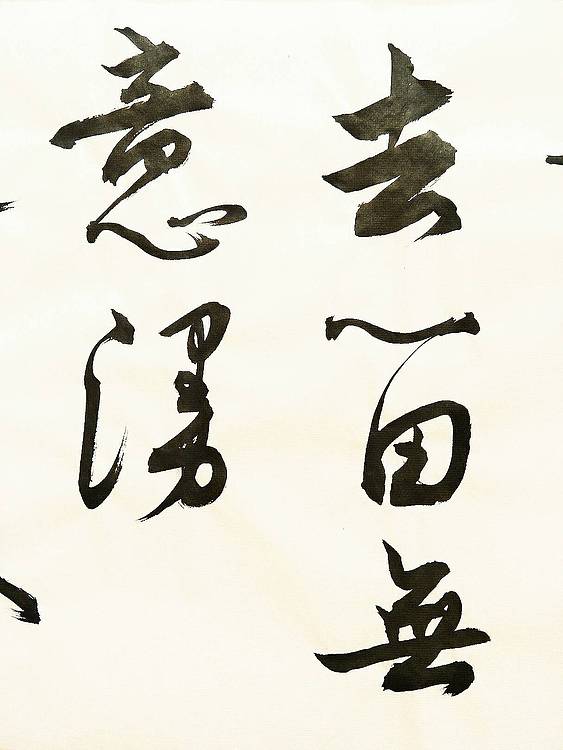 去留無
意漫